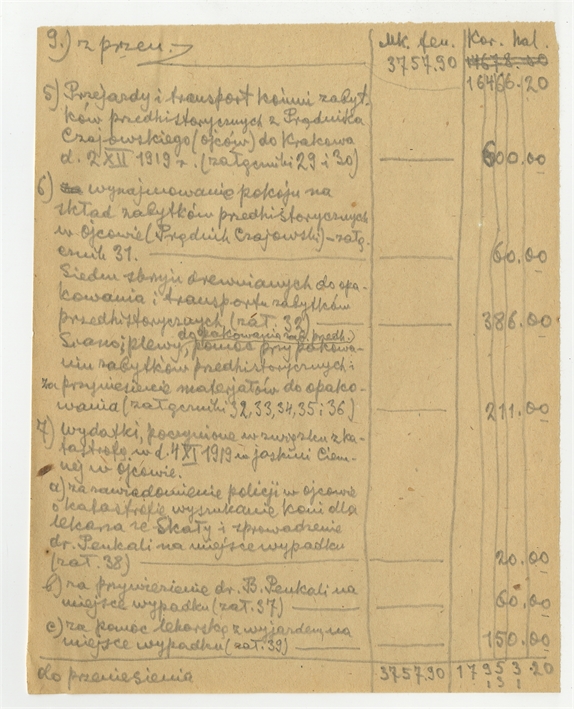 9.) z przen. Mk. fen. Kor. hal.
3757.90 14678.40
16466.20
5) Przejazdy i transport końmi zabyt-
ków przedhistorycznych z Prądnika
Czajowskiego (ojców) do Krakowa
d. 2 XII 1919 r. (załączniki 29 i 30) 600.00
6) wynajmowanie pokoju na
skład zabytków przedhistorycznych
w Ojcowie (Prądnik Czajowski) – załą-
cznik 31. 60.00
Siedm skrzyń drewnianych do opa-
kowania i transportu zabytków
przedhistorycznych (zał. 32) 386.00
do opakowania zab. przedh.)
Siano, plewy, pomoc przy pakowa-
niu zabytków przedhistorycznych i
za przyniesienie materjałów do opako-
wania (załączniki 32, 33, 34, 35 i 36) 211.00
7) wydatki, poczynione w związku z ka-
tastrofą w d. 4 XI 1919 w jaskini Ciem-
nej w Ojcowie.
a) za zawiadomienie policji w Ojcowie
o katastrofie wyszukanie koni dla
lekarza ze Skały i sprowadzenie
dr. Penkali na miejsce wypadku
(zał. 38) 20.00
b) za przywiezienie dr. B. Penkali na
miejsce wypadku (zał. 37) 60.00
c) za pomoc lekarską z wyjazdem na
miejsce wypadku (zał. 39) 150.00
do przeniesienia 3757.90 17953.20